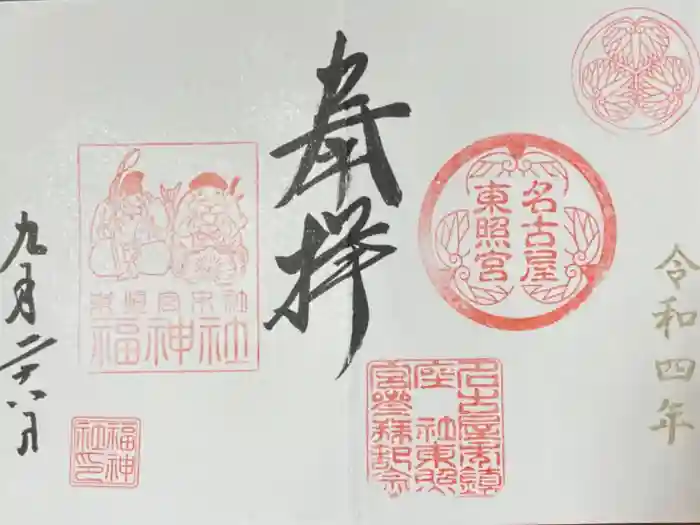 令和四年
名古屋
東照宮
名古屋市鎮
座 社東照
宮參拜記念
奉拝
東照宮末社
福神社
九月二十八日
福神
社印